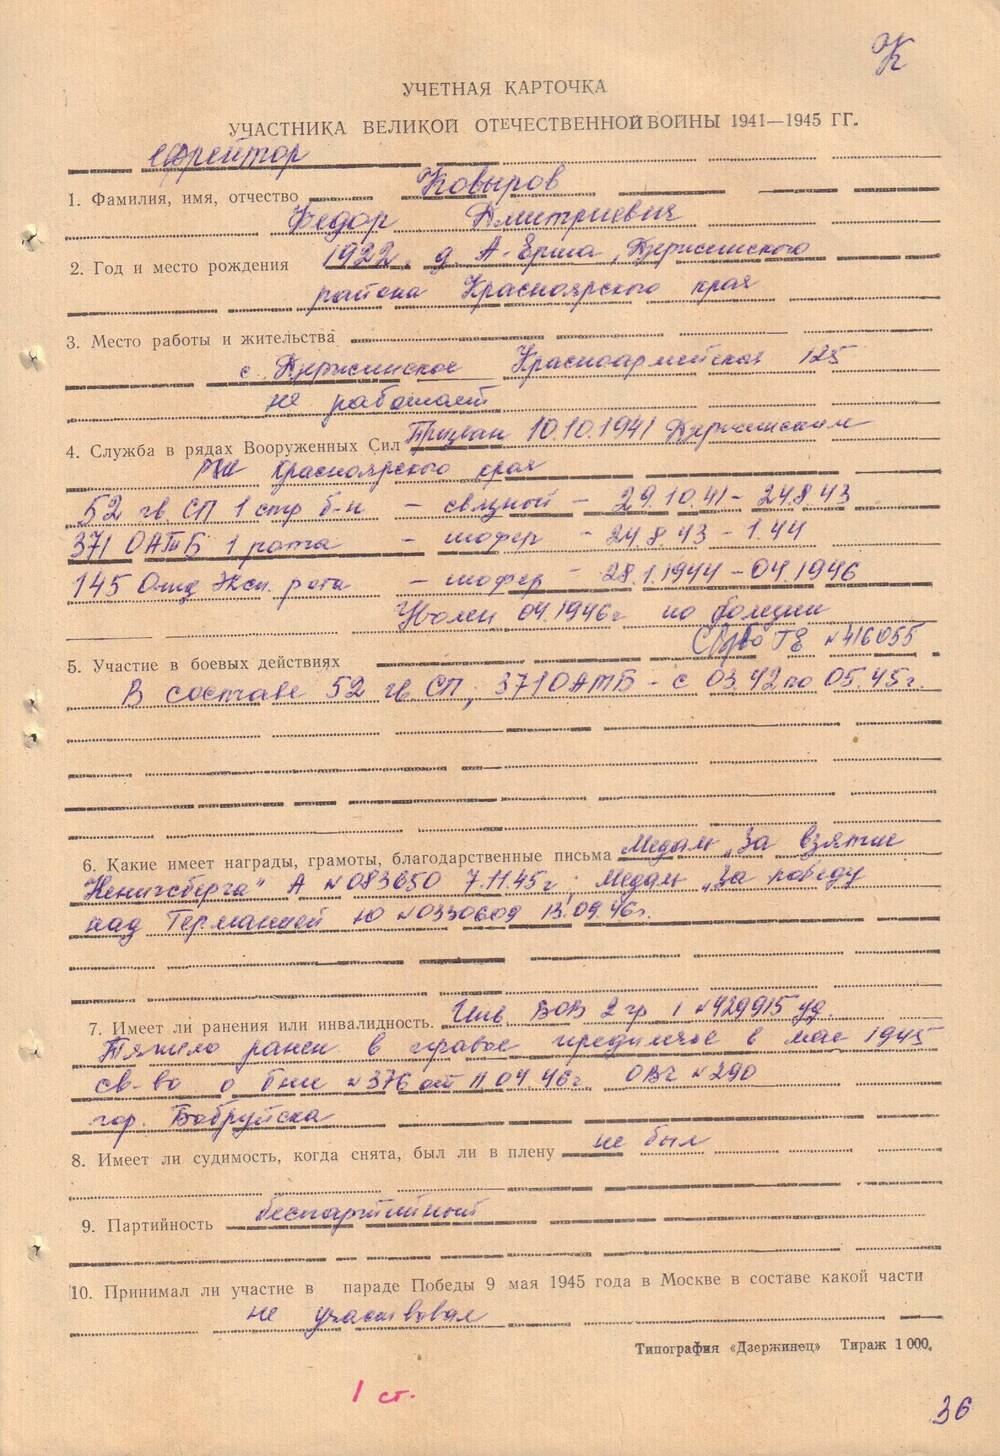 К
УЧЕТНАЯ КАРТОЧКА
УЧАСТНИКА ВЕЛИКОЙ ОТЕЧЕСТВЕННОЙ ВОЙНЫ 1941—1945 ГГ.
ефрейтор
1. Фамилия, имя, отчество Ковыров
Федор Дмитриевич
2. Год и место рождения 1922 г. д. А-Ерша, Дзержинского
района Красноярского края
3. Место работы и жительства
с. Дзержинское Красноармейская 125
не работает
4. Служба в рядах Вооруженных Сил Призван 10.10.1941 Дзержинским
РВК Красноярского края
52 гв. СП 1 стр б-н – связной – 29.10.41 – 24.8.43
371 ОАТБ 1 рота – шофер – 24.8.43 – 1.44
145 Отд. Эксп. рота – шофер – 28.1.1944 – 04.1946
Уволен 04.1946г по болезни
ГЕ №416055
5. Участие в боевых действиях
В составе 52 гв. СП, 371 ОАТБ – с 03.42 по 05.45г.
6. Какие имеет награды, грамоты, благодарственные письма Медаль „За взятие
Кенигсберга" А №083650 7.11.45г; медаль „За победу
над Германией Ю №0330609 13.09.46г.
7. Имеет ли ранения или инвалидность. Инв. ВОВ 2 гр №429915 уд.
Тяжело ранен в правое предплечье в мае 1945
св-во о б-ни №376 от 11.04.46г ОВГ №290
гор. Бобруйска
8. Имеет ли судимость, когда снята, был ли в плену не был
9. Партийность беспартийный
10. Принимал ли участие в параде Победы 9 мая 1945 года в Москве в составе какой части
не участвовал
Типография «Дзержинец» Тираж 1 000.
1 ст.
36